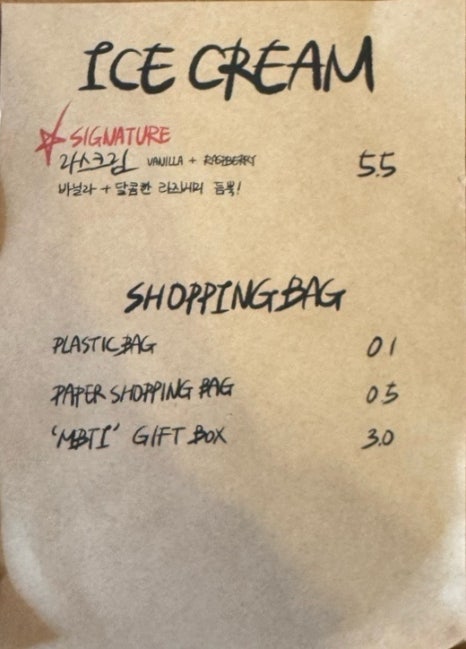 ICE CREAM
☆ SIGNATURE
라스크림 VANILLA + RASPBERRY 5.5
바닐라 + 달콤한 라즈베리 듬뿍!
SHOPPING BAG
PLASTIC BAG 0.1
PAPER SHOPPING BAG 0.5
'MBTI' GIFT BOX 3.0